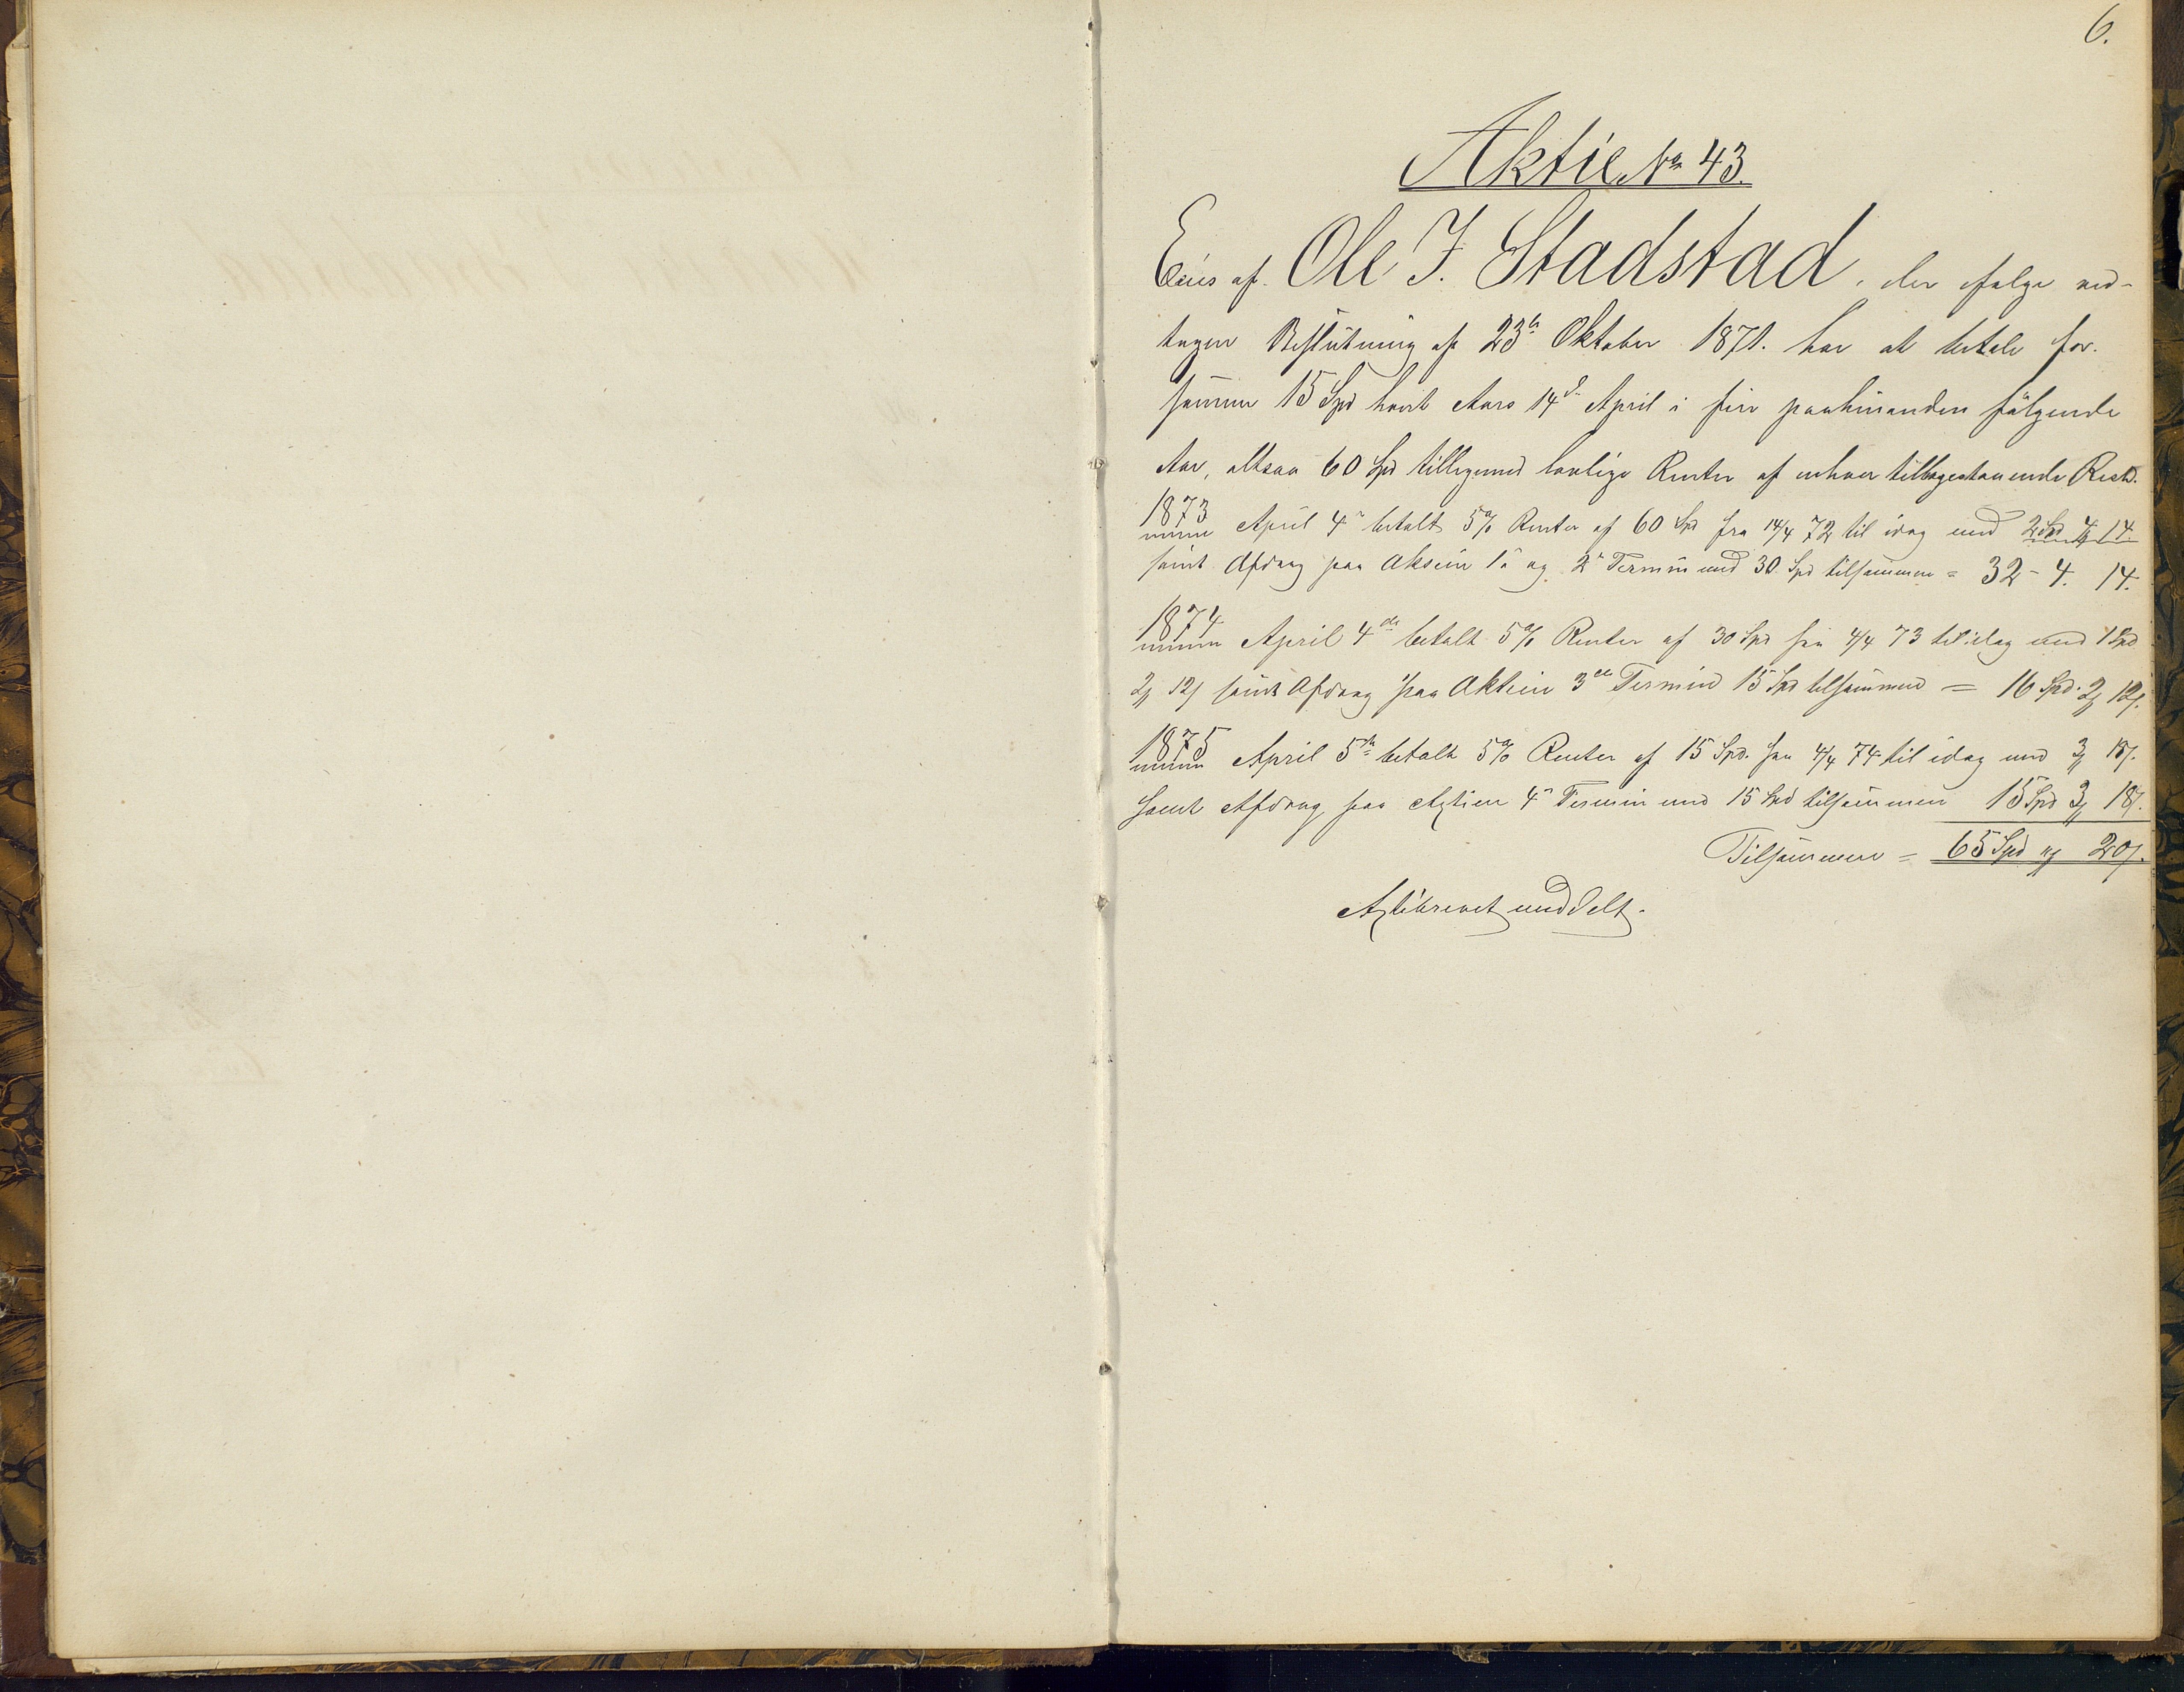 6.
Aktie No 43.
Eies af Ole J. Stadstad, der ifølge ved-
tagen Beslutning af 23de Oktober 1871. har at betale for
samme 15 Spd hvert Aars 14de April i fire paahinanden følgende
Aar, altsaa 60 Spd tilligemed lovlige Renter af enhver tilbagestaaende Rest.
1873 April 4de betalt 5% Renter af 60 Spd fra 14/4 72 til idag med 2 Spd 4 14.
samt Afdrag paa Aksien 1ste og 2den Termin med 30 Spd tilsammen = 32 - 4. 14.
1874 April 4de betalt 5% Renter af 30 Spd fra 4/4 73 til idag med 1 Spd
2 12 samt Afdrag paa Aktien 3die Termin 15 Spd tilsammen = 16 Spd. 2 12.
1875 April 5te betalt 5% Renter af 15 Spd. fra 4/4 74 til idag med 3 18.
samt Afdrag paa Aktien 4de Termin med 15 Spd tilsammen 15 Spd 3 18.
Tilsammen = 65 Spd 20.
Aktiebrevet meddelt.